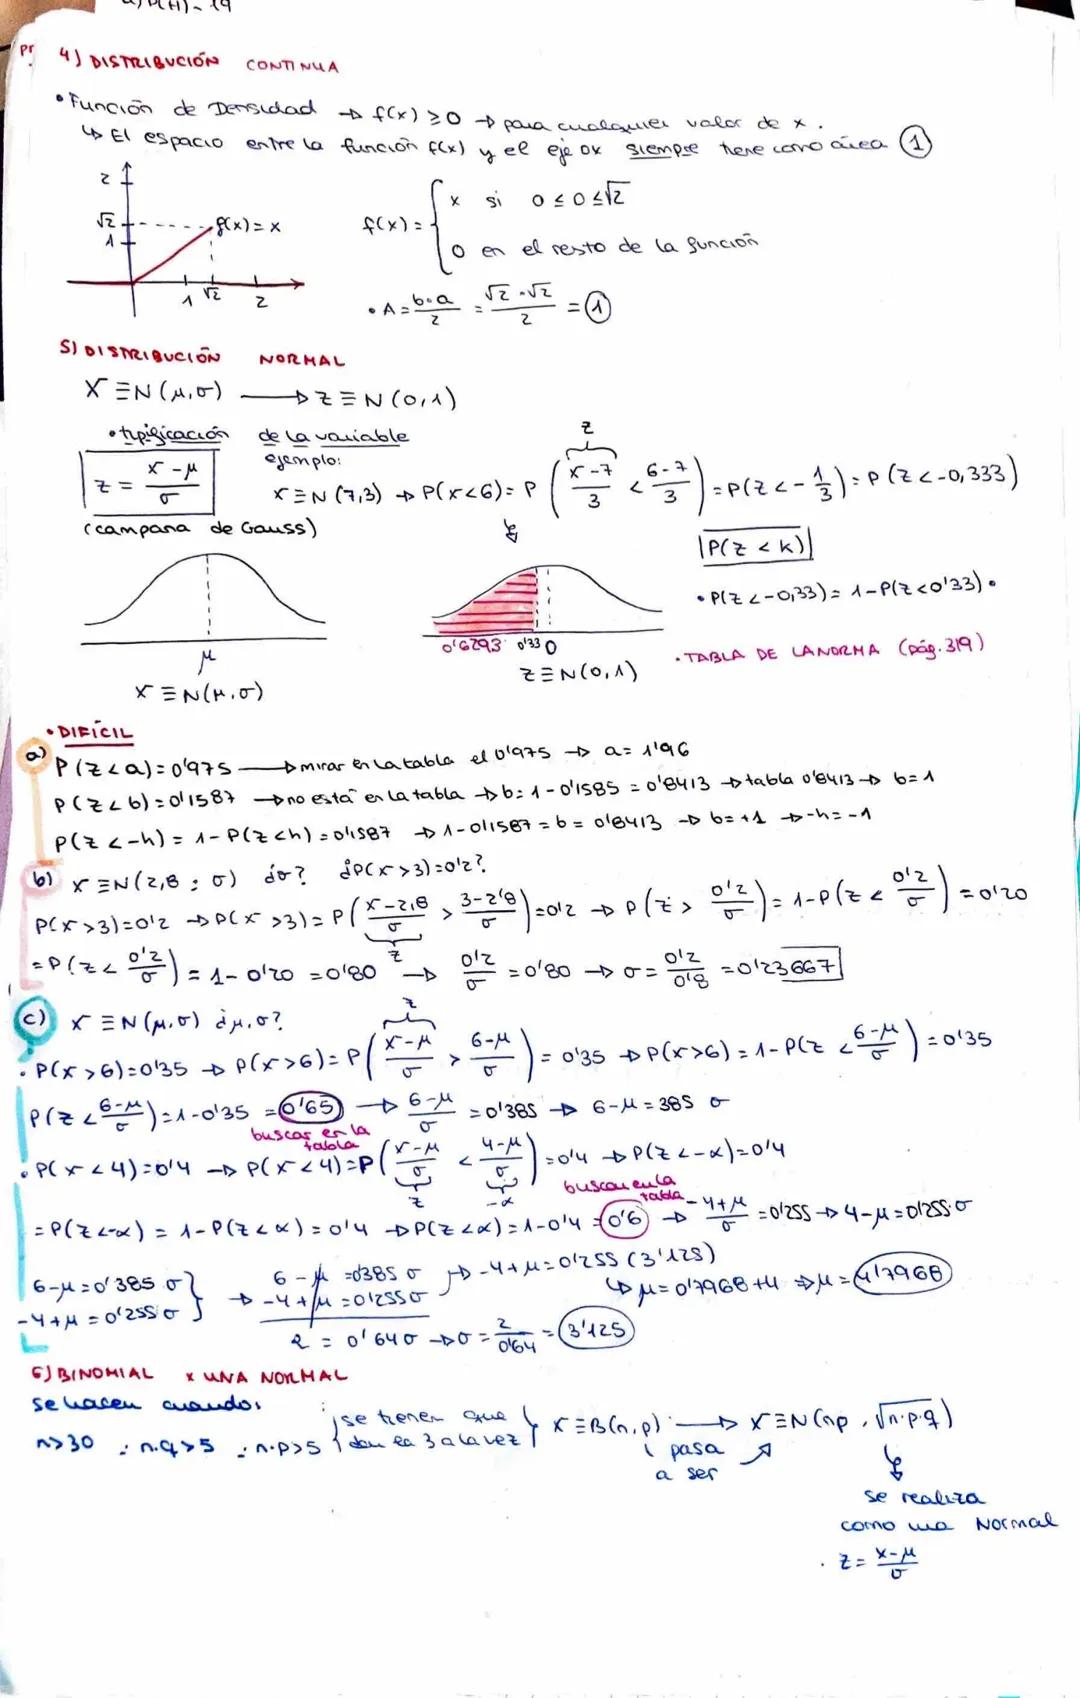 a) P(H) = 19
Pr
4) DISTRIBUCIÓN CONTINUA
• Función de Densidad → f(x) ≥ 0 → para cualquier valor de x.
↳ El espacio entre la función f(x) y el eje OX siempre tiene como área 1
2
√2
1
f(x) = x
1 √2 2
f(x) = { x si 0 ≤ 0 ≤ √2
0 en el resto de la función
• A = b·a/2 = √2·√2/2 = 1
5) DISTRIBUCIÓN NORMAL
X ≡ N(μ,σ) → Z ≡ N(0,1)
• tipificación de la variable
z = x-μ/σ
ejemplo:
x ≡ N(7,3) → P(x<6) = P(x-7/3 < 6-7/3) = P(z < -1/3) = P(z < -0,333)
z
(campana de Gauss)
|P(z < k)|
• P(z < -0,33) = 1 - P(z < 0'33) •
μ
X ≡ N(μ,σ)
0'6293 0'33 0
Z ≡ N(0,1)
• TABLA DE LA NORMA (pág. 319)
• DIFÍCIL
a) P(z < a) = 0'975 → mirar en la tabla el 0'975 → a = 1'96
P(z < b) = 0'1587 → no está en la tabla → b: 1 - 0'1585 = 0'8413 → tabla 0'8413 → b = 1
P(z < -h) = 1 - P(z < h) = 0'1587 → 1 - 0'1587 = b = 0'8413 → b = +1 → -h = -1
b) x ≡ N(2,8 ; σ) ¿σ? ¿P(x > 3) = 0'2?
P(x > 3) = 0'2 → P(x > 3) = P(x-2,8/σ > 3-2'8/σ) = 0'2 → P(z > 0'2/σ) = 1 - P(z < 0'2/σ) = 0'20
z
= P(z < 0'2/σ) = 1 - 0'20 = 0'80 → 0'2/σ = 0'80 → σ = 0'2/0'8 = 0'23667
c) x ≡ N(μ,σ) ¿μ,σ?
z
• P(x > 6) = 0'35 → P(x > 6) = P(x-μ/σ > 6-μ/σ) = 0'35 → P(x > 6) = 1 - P(z < 6-μ/σ) = 0'35
P(z < 6-μ/σ) = 1 - 0'35 = 0'65 → 6-μ/σ = 0'385 → 6-μ = 385 σ
buscar en la tabla
• P(x < 4) = 0'4 → P(x < 4) = P(x-μ/σ < 4-μ/σ) = 0'4 → P(z < -α) = 0'4
z -α
buscar en la tabla
= P(z < -α) = 1 - P(z < α) = 0'4 → P(z < α) = 1 - 0'4 = 0'6 → -4+μ/σ = 0'255 → 4-μ = 0'255·σ
6-μ = 0'385 σ
-4+μ = 0'255 σ
→ 6-μ = 0'385 σ
-4+μ = 0'255 σ
2 = 0'640 → σ = 2/0'64 = 3'125
→ -4+μ = 0'255 (3'125)
↳ μ = 0'7968+4 ⇒ μ = 4'7968
6) BINOMIAL x UNA NORMAL
se hacen cuando:
n>30 ; n·q>5 ; n·p>5
se tienen que
dar en 3 a la vez
x ≡ B(n,p) → x ≡ N(np, √n·p·q)
pasa
a ser
se realiza
como una Normal
• z = x-μ/σ